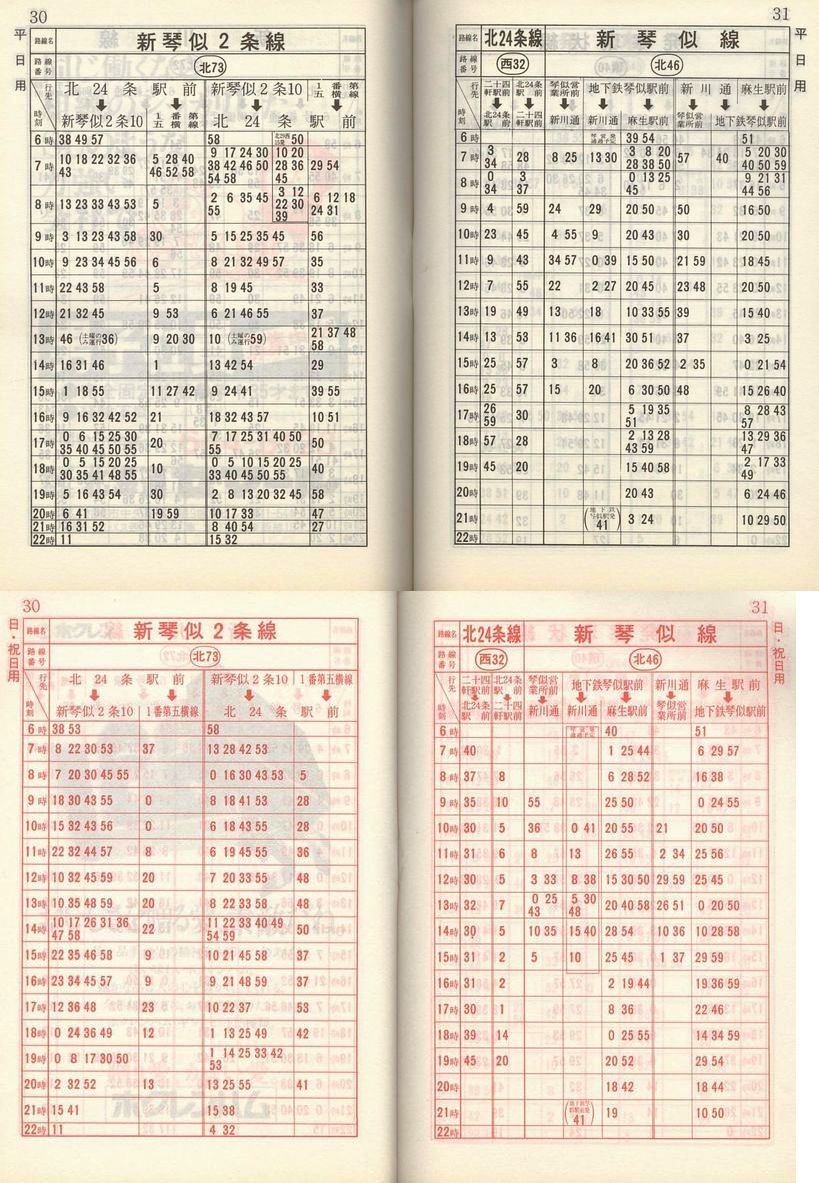 30
平日用
路線名 新琴似2条線
路線番号 北73
行先 時刻 北24条駅前 新琴似2条10 北24条駅前 1番第五横線 新琴似2条10 北24条駅前 1番第五横線 北24条駅前
6時 38 49 57 58 50
7時 10 18 22 32 36 43 5 28 40 46 52 58 9 17 24 30 38 42 46 50 54 58 10 20 28 36 45 29 54
8時 13 23 33 43 53 5 2 6 35 45 55 3 12 22 30 39 6 12 18 24 31
9時 3 13 23 43 58 30 5 15 25 35 45 56
10時 9 23 34 45 56 6 8 21 32 49 57 35
11時 22 43 58 5 8 19 45 33
12時 21 32 45 9 53 6 21 46 55 37
13時 46 (土曜のみ運行36) 9 20 30 10 (土曜のみ運行59) 21 37 48 58
14時 16 31 46 1 13 42 54 29
15時 1 18 55 11 27 42 9 24 41 39 55
16時 9 16 32 42 52 21 18 32 43 57 10 51
17時 0 6 15 25 30 35 40 45 50 55 20 7 17 25 31 40 50 55 50
18時 0 5 15 20 25 30 35 41 48 55 10 0 5 10 15 20 25 33 40 45 50 55 40
19時 5 16 43 54 30 2 8 13 20 32 45 58
20時 6 41 19 59 10 17 33 47
21時 16 31 52 8 40 54 27
22時 11 15 32
31
平日用
路線名 北24条線 新琴似線
路線番号 西32 北46
行先 時刻 二十四軒駅前 北24条駅前 北24条駅前 二十四軒駅前 琴似営業所前 新川通 地下鉄琴似駅前 新川通 麻生駅前 新川通 琴似営業所前 麻生駅前 地下鉄琴似駅前
6時 39 54 51
7時 3 34 28 8 25 13 30 3 8 20 28 38 50 57 40 5 20 30 40 50 59
8時 0 34 3 37 0 13 25 45 9 21 31 44 56
9時 4 59 24 29 20 50 50 16 50
10時 23 45 4 55 9 20 43 30 20 50
11時 9 43 34 57 0 39 15 50 21 59 18 45
12時 7 55 22 2 27 20 45 23 48 20 50
13時 19 49 13 18 10 33 55 39 15 40
14時 13 53 11 36 16 41 30 51 37 3 25
15時 25 57 3 8 20 36 52 2 35 0 21 54
16時 25 57 15 20 6 30 50 48 15 26 40
17時 26 59 30 5 19 35 51 8 28 43 57
18時 57 28 2 13 28 43 59 13 29 36 47
19時 45 20 15 40 58 2 17 33 49
20時 20 43 6 24 46
21時 41 3 24 10 29 50
22時
30
日・祝日用
路線名 新琴似2条線
路線番号 北73
行先 時刻 北24条駅前 新琴似2条10 1番第五横線 新琴似2条10 1番第五横線 北24条駅前
6時 38 53 58
7時 8 22 30 53 37 13 28 42 53
8時 7 20 30 45 55 0 16 30 43 53 5
9時 18 30 43 55 0 8 18 41 53 28
10時 15 32 43 56 0 6 18 43 55 28
11時 22 32 44 57 8 6 19 45 55 36
12時 10 32 45 59 20 7 20 33 55 48
13時 10 35 48 59 20 8 22 33 58 48
14時 10 17 26 31 36 47 58 22 11 22 33 40 49 54 59 50
15時 22 35 46 58 9 10 21 45 58 37
16時 23 34 45 57 9 9 21 48 59 37
17時 12 36 48 23 10 22 37 53
18時 0 24 36 49 12 1 13 25 49 42
19時 0 8 17 30 50 1 14 25 33 42 53
20時 2 32 52 13 13 25 55 41
21時 15 41 15 38
22時 11 4 32
31
日・祝日用
路線名 北24条線 新琴似線
路線番号 西32 北46
行先 時刻 二十四軒駅前 北24条駅前 北24条駅前 二十四軒駅前 琴似営業所前 新川通 地下鉄琴似駅前 新川通 麻生駅前 新川通 琴似営業所前 麻生駅前 地下鉄琴似駅前
6時 40 51
7時 40 1 25 44 6 29 57
8時 37 8 6 28 52 16 38
9時 35 10 55 25 50 0 24 55
10時 30 5 36 0 41 20 55 21 20 50
11時 31 6 8 13 26 55 2 34 25 56
12時 30 5 3 33 8 38 15 30 50 29 59 25 45
13時 32 7 0 25 43 5 30 48 20 40 58 26 51 0 20 50
14時 30 5 10 35 15 40 28 54 10 36 10 28 58
15時 31 2 5 10 25 45 1 37 29 59
16時 31 2 2 19 44 19 36 59
17時 30 1 8 36 22 46
18時 39 14 0 25 55 14 34 59
19時 45 20 20 52 29 54
20時 18 42 18 44
21時 41 19 10 50
22時